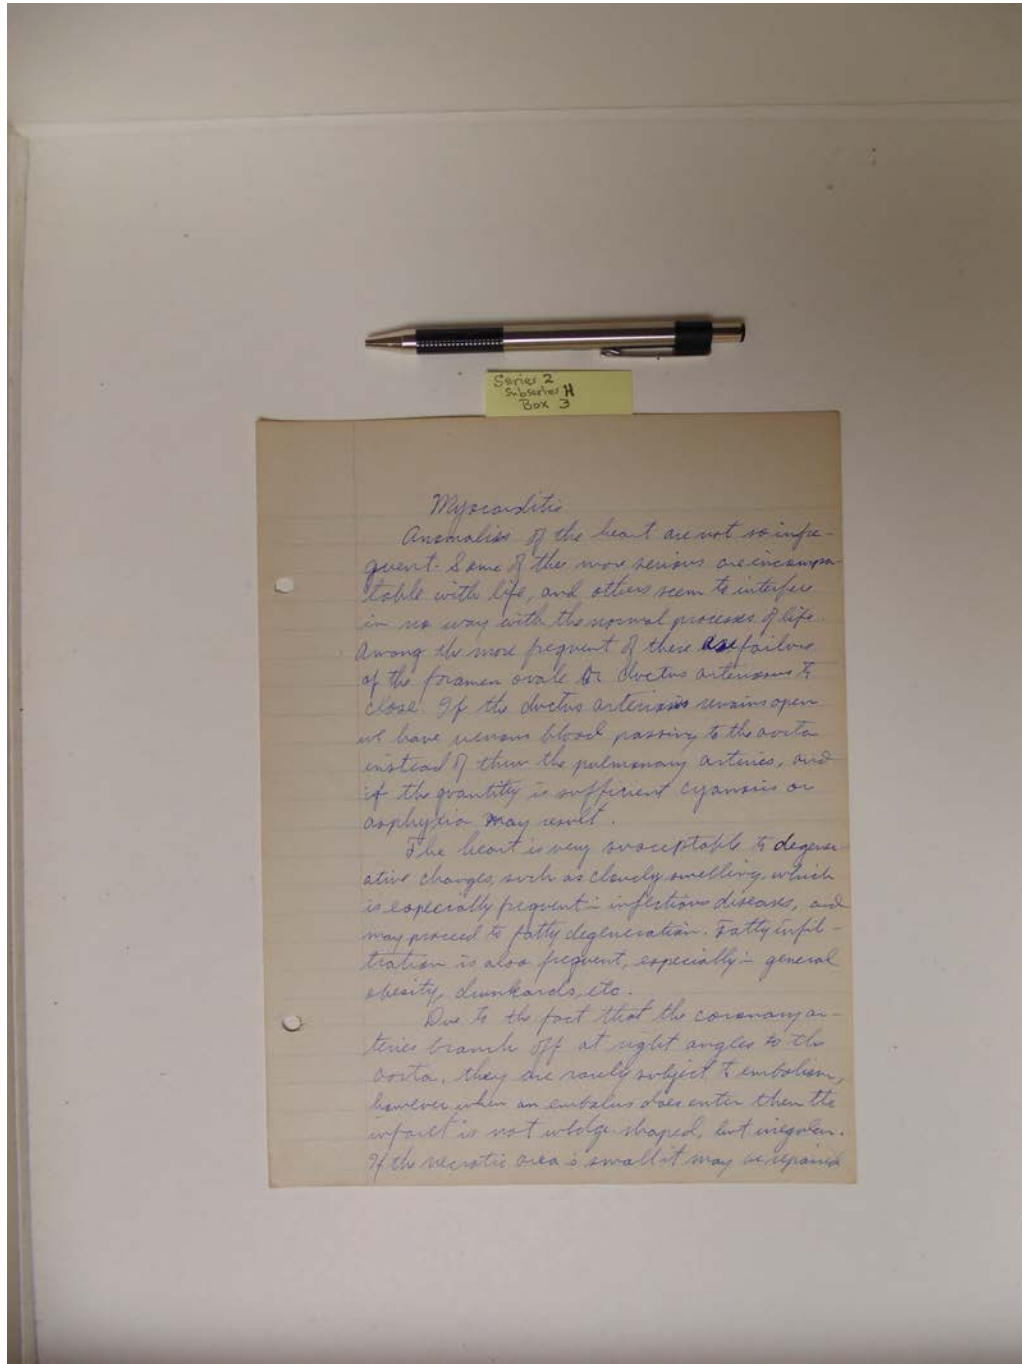 Series 2
Subseries H
Box 3
Myocarditis
Anomalies of the heart are not so infre-
quent. Some of the more serious are incompa-
table with life, and others seem to interfere
in no way with the normal processes of life.
Among the more frequent of these are failure
of the foramen ovale or ductus arteriosus to
close. If the ductus arteriosis remains open
we have venous blood passing to the aorta
instead of thru the pulmonary arteries, and
if the quantity is sufficient cyanosis or
asphyxia may result.
The heart is very susceptable to degener-
ative changes, such as cloudy swelling, which
is especially frequent in infectious diseases, and
may proceed to fatty degeneration. Fatty infil-
tration is also frequent, especially in general
obesity, drunkards, etc.
Due to the fact that the coronary ar-
teries branch off at right angles to the
aorta, they are rarely subject to embolism,
however when an embolus does enter them the
infarct is not wedge-shaped, but irregular.
If the necrotic area is small it may be repaired